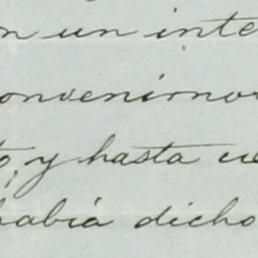 un inte
convenirnos
y hasta
había dicho